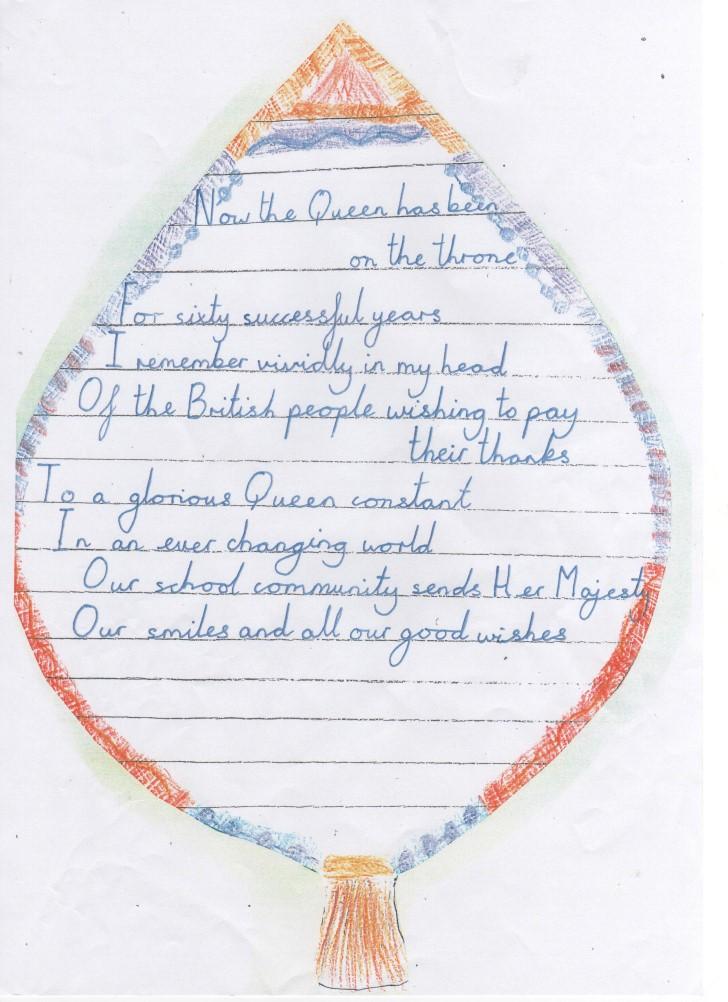 Now the Queen has been
on the throne
For sixty successful years
I remember vividly in my head
Of the British people wishing to pay
their thanks
To a glorious Queen constant
In an ever changing world
Our school community sends Her Majesty
Our smiles and all our good wishes